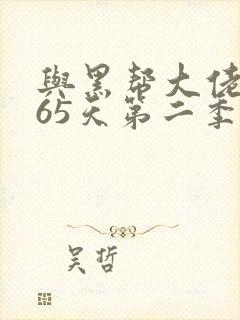 與黑帮大佬
65天第二季
吴哲